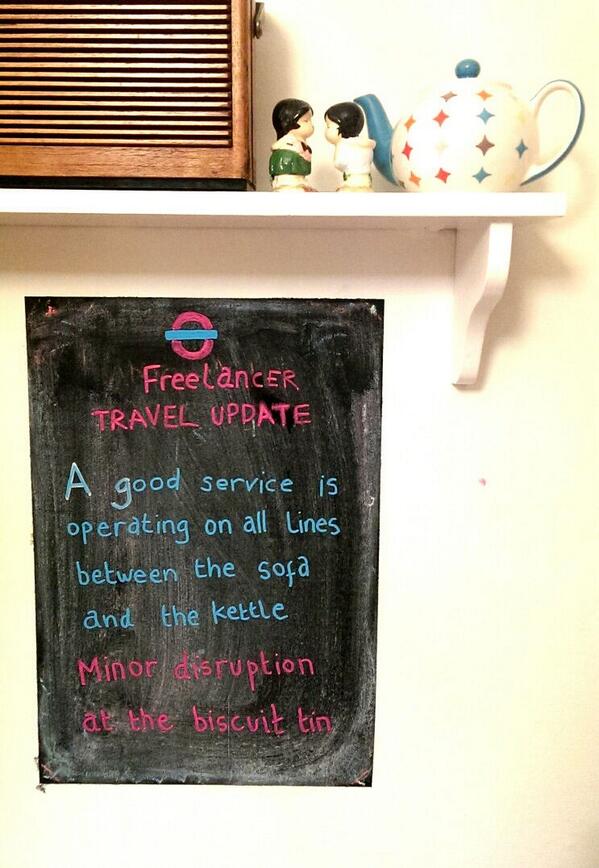 Freelancer
TRAVEL UPDATE
A good service is
operating on all lines
between the sofa
and the kettle
Minor disruption
at the biscuit tin